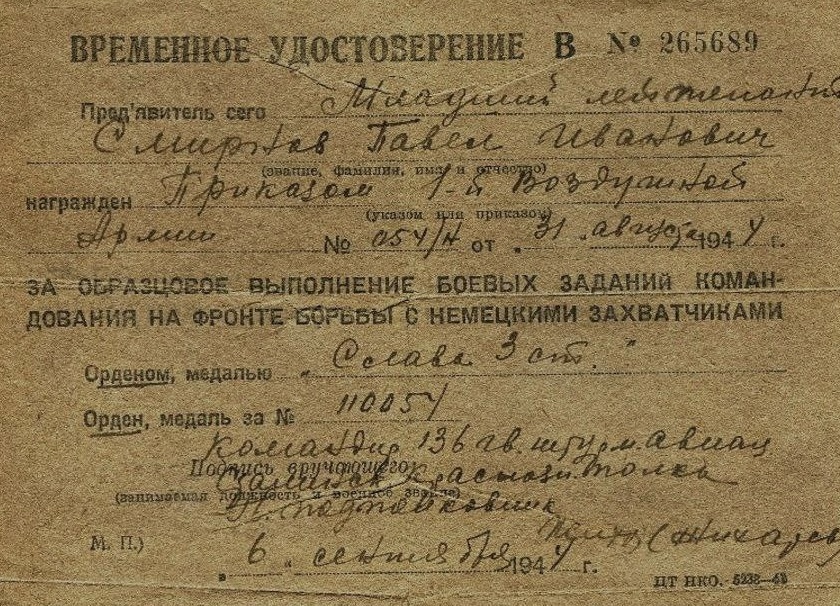 ВРЕМЕННОЕ УДОСТОВЕРЕНИЕ В № 265689
Пред'явитель сего Младший лейтенант
Смирнов Павел Иванович
(звание, фамилия, имя и отчество)
награжден Приказом 1-й Воздушной
(указом или приказом)
Армии № 054/н от „31 „августа 1944 г.
ЗА ОБРАЗЦОВОЕ ВЫПОЛНЕНИЕ БОЕВЫХ ЗАДАНИЙ КОМАН-
ДОВАНИЯ НА ФРОНТЕ БОРЬБЫ С НЕМЕЦКИМИ ЗАХВАТЧИКАМИ
Орденом, медалью „Слава 3 ст."
Орден, медаль за № 110054
Командир 136 гв. штурм. авиац
Подпись вручающего
Краснозн. полка
(занимаемая должность и военное звание)
Гв. подполковник
М. П.)
„6 „ сентября 1944 г.
ЦТ НКО. 5238—43